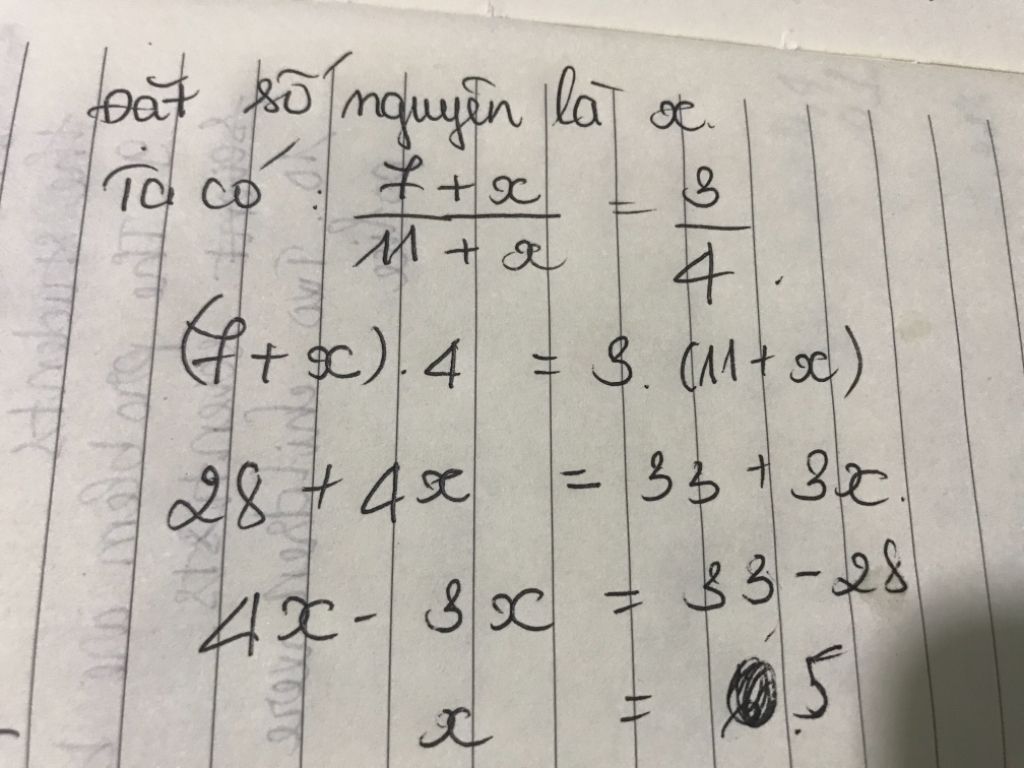 Đặt số nguyên là x.
Ta có : 7 + x / 11 + x = 3 / 4 .
(7 + x) . 4 = 3 . (11 + x)
28 + 4x = 33 + 3x.
4x - 3x = 33 - 28
x = 5